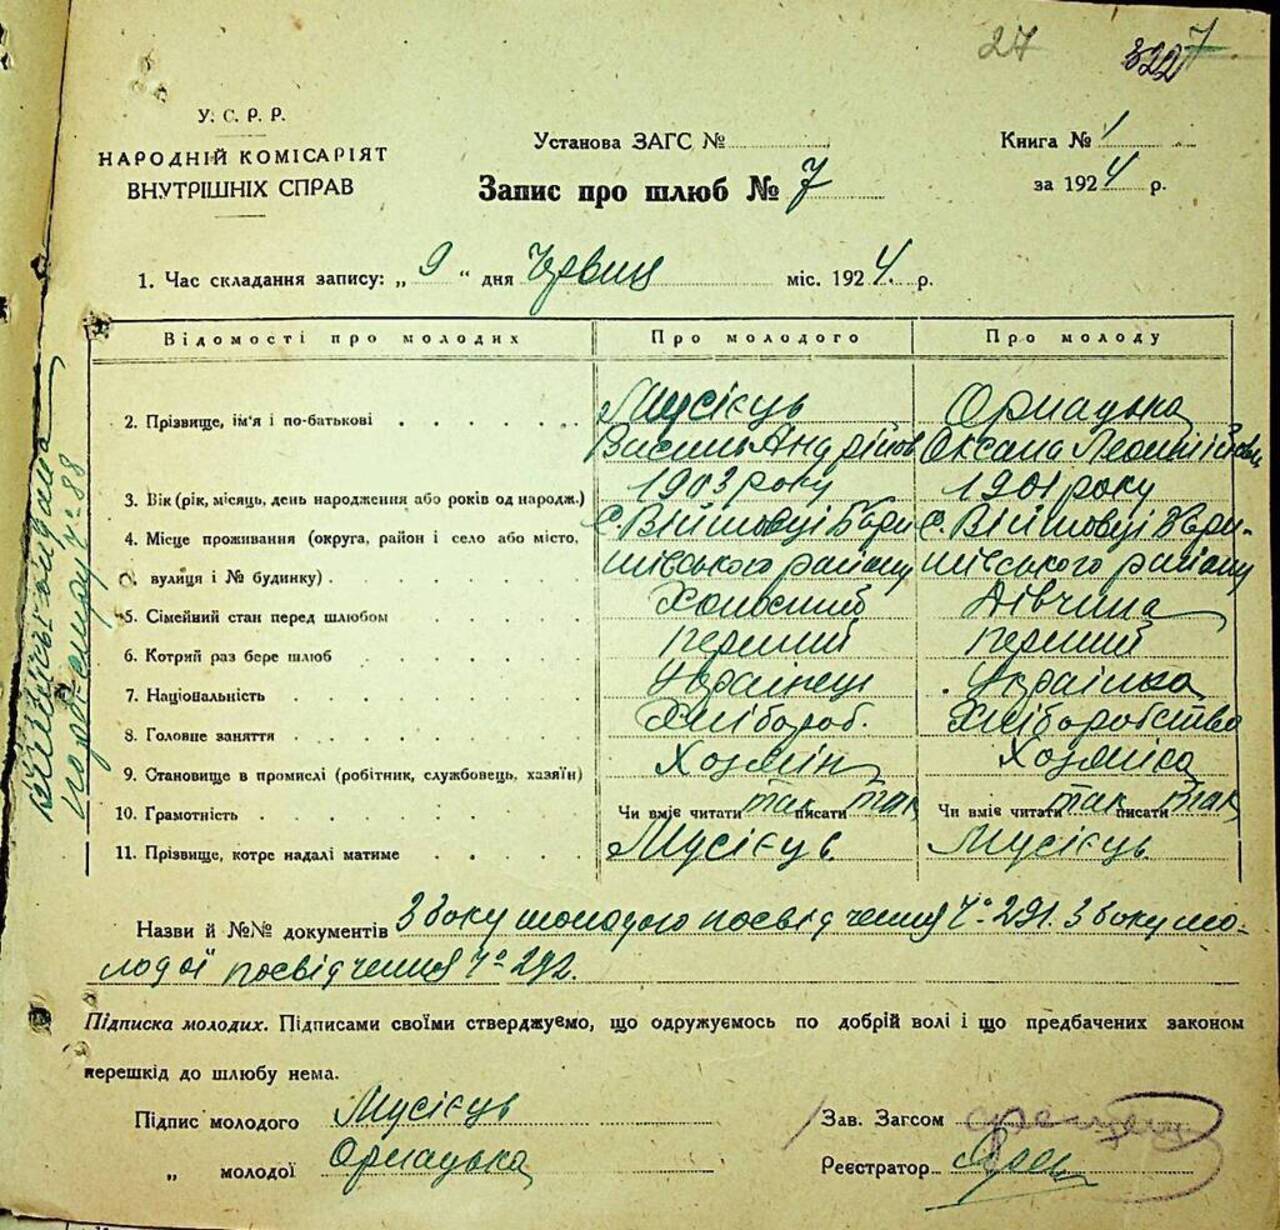 27 322 7
У. С. Р. Р.
НАРОДНІЙ КОМІСАРІЯТ
ВНУТРІШНІХ СПРАВ
Установа ЗАГС №
Запис про шлюб № 7
Книга № 1
за 1924 р.
1. Час складання запису: „ 9 “ дня Червця міс. 1924 р.
Відомості про молодих Про молодого Про молоду
2. Прізвище, ім'я і по-батькові Мусієць
Василь Андрійов Орлацька
Оксана Леонтійовна
3. Вік (рік, місяць, день народження або років од народж.) 1903 року 1901 року
4. Місце проживання (округа, район і село або місто, с. Війтовці Бари- с. Війтовці Бари-
вулиця і № будинку) шівського району шівського району
5. Сімейний стан перед шлюбом Холостий Дівчина
6. Котрий раз бере шлюб перший перший
7. Національність Українець Українка
8. Головне заняття Хлібороб. Хліборобство
9. Становище в промислі (робітник, службовець, хазяїн) Хозяїн Хозяїка
10. Грамотність Чи вміє читати так писати так Чи вміє читати так писати так
11. Прізвище, котре надалі матиме Мусієць Мусієць
Назви й №№ документів З боку молодого посвідчення № 291. З боку мо-
лодої посвідчення № 292.
Підписка молодих. Підписами своїми стверджуємо, що одружуємось по добрій волі і що предбачених законом
перешкід до шлюбу нема.
Підпис молодого Мусієць
„ молодої Орлацька
Зав. Загсом
Реєстратор